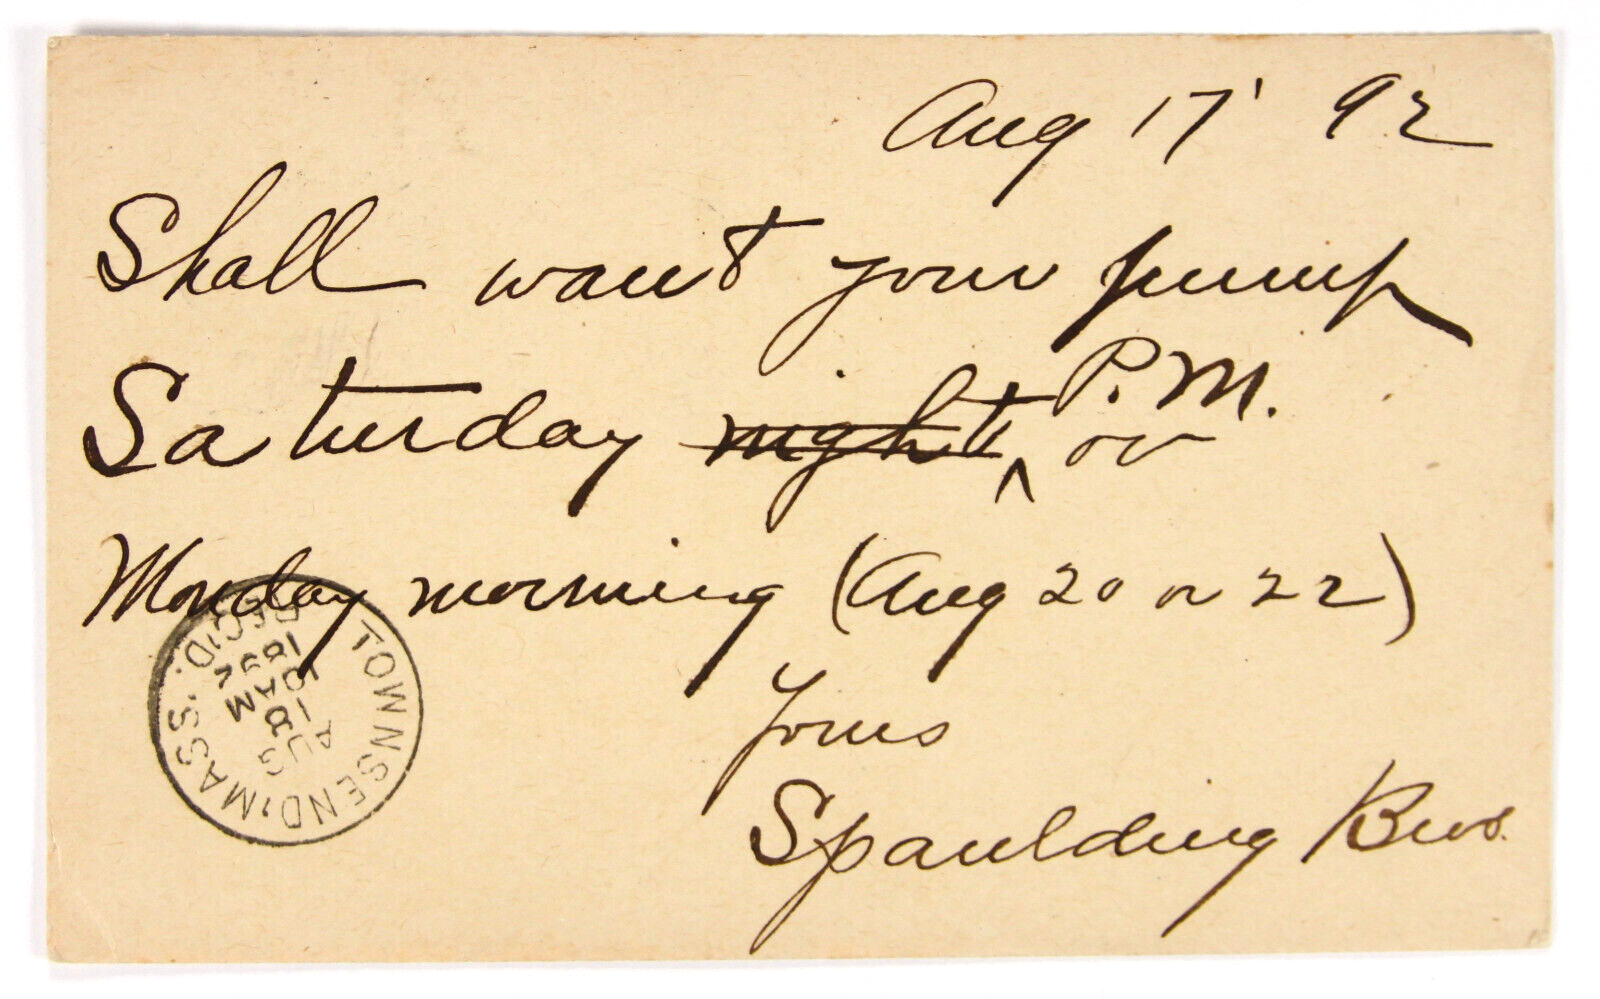 Aug 17' 92
Shall want your pump
Saturday night ^ P.M. or
Monday morning (Aug 20 or 22)
Yours
Spaulding Bros.
TOWNSEND, MASS.
AUG
18
10 AM
1892
REC'D.